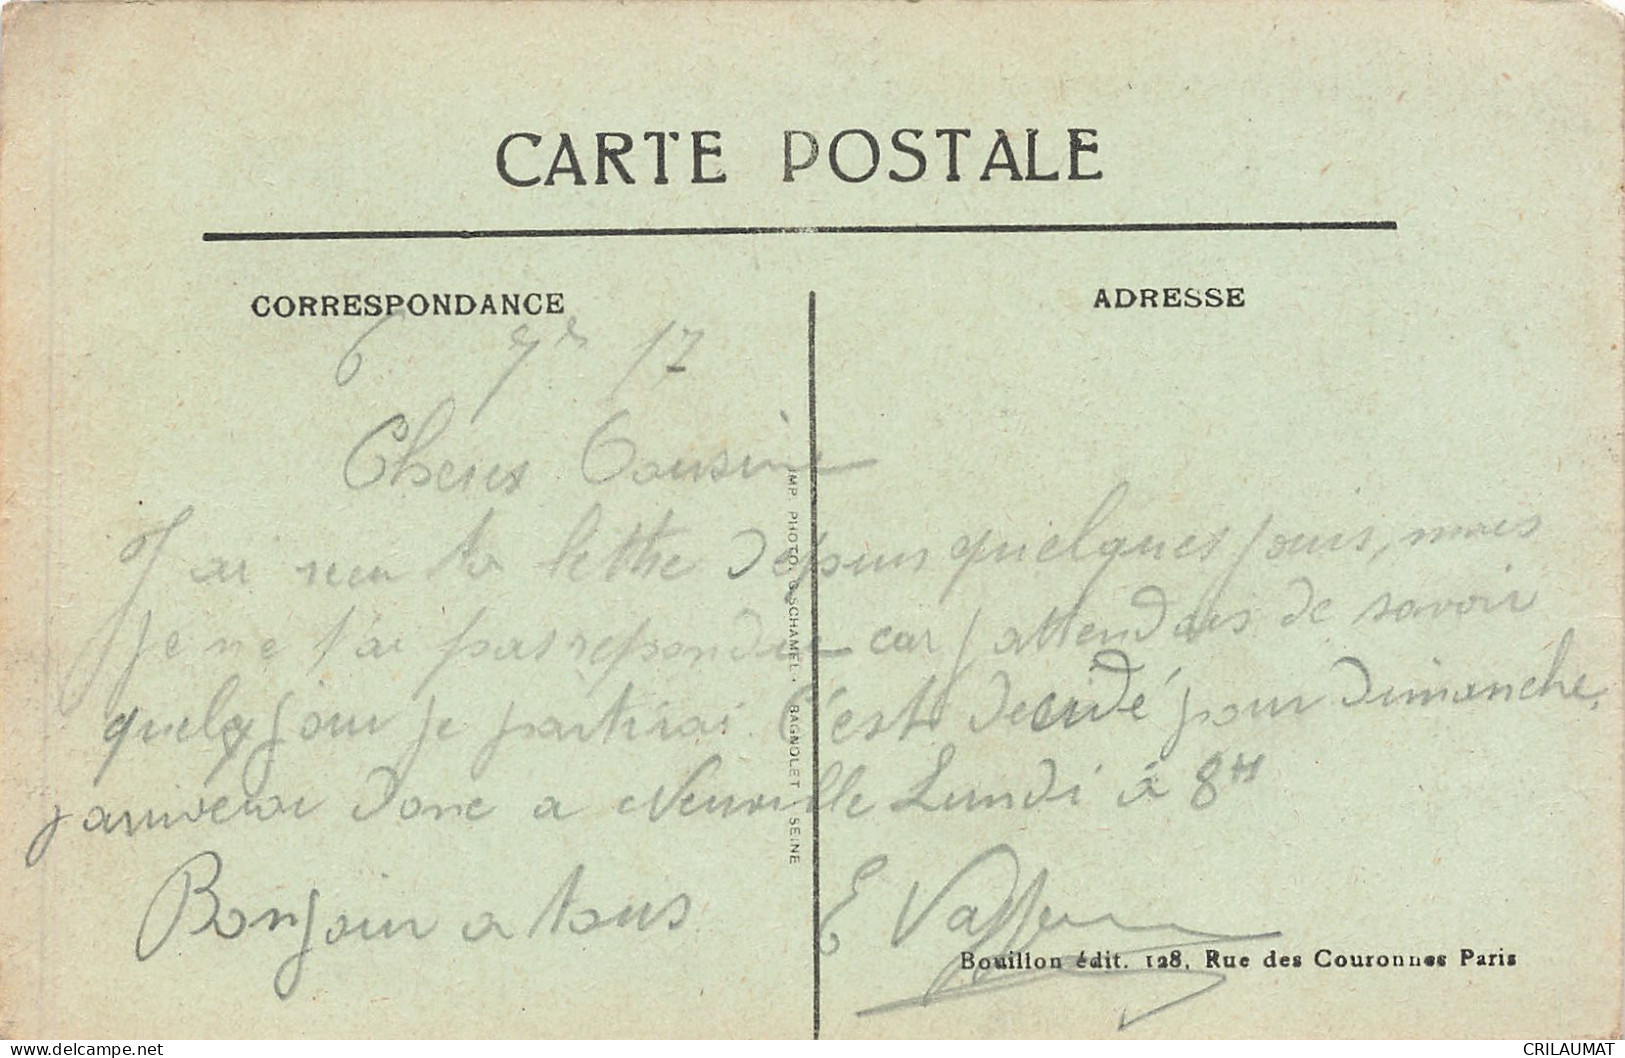 CARTE POSTALE
CORRESPONDANCE
ADRESSE
6 7re 17
Cheres Cousine
J'ai reçu ta lettre depuis quelques jours, mais
je ne t'ai pas repondu car j'attendais de savoir
quelq jour je partirai. C'est decidé pour dimanche,
j'arriverai donc a Neuville Lundi à 8H
Bonjour a tous
E
Bouillon édit. 128, Rue des Couronnes Paris
IMP. PHOTO. G. SCHAMEL. BAGNOLET SEINE
delcampe.net
CRILAUMAT